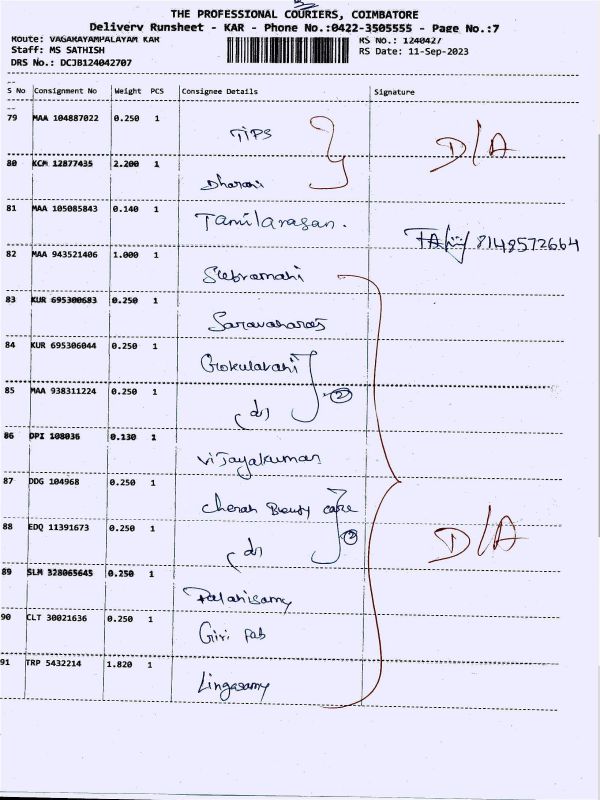 THE PROFESSIONAL COURIERS, COIMBATORE
Delivery Runsheet - KAR - Phone No.:0422-3505555 - Page No.:7
Route: VAGARAYAMPALAYAM KAR
RS No.: 1240427
Staff: MS SATHISH
RS Date: 11-Sep-2023
DRS No.: DCJB124042707
S No Consignment No Weight PCS Consignee Details Signature
79 MAA 104887022 0.250 1
TIPS
D/A
80 KCM 12877435 2.200 1
Dharani
81 MAA 105085843 0.140 1
Tamilarasan.
8148572664
82 MAA 943521406 1.000 1
Subramani
83 KUR 695300683 0.250 1
84 KUR 695306044 0.250 1
85 MAA 938311224 0.250 1
do
2
86 DPI 108036 0.130 1
Vijayakumar
87 DDG 104968 0.250 1
Cheran Beauty care
88 EDQ 11391673 0.250 1
do
2
D/A
89 SLM 328065645 0.250 1
Palanisamy
90 CLT 30021636 0.250 1
Giri Fab
91 TRP 5432214 1.820 1
Lingasamy